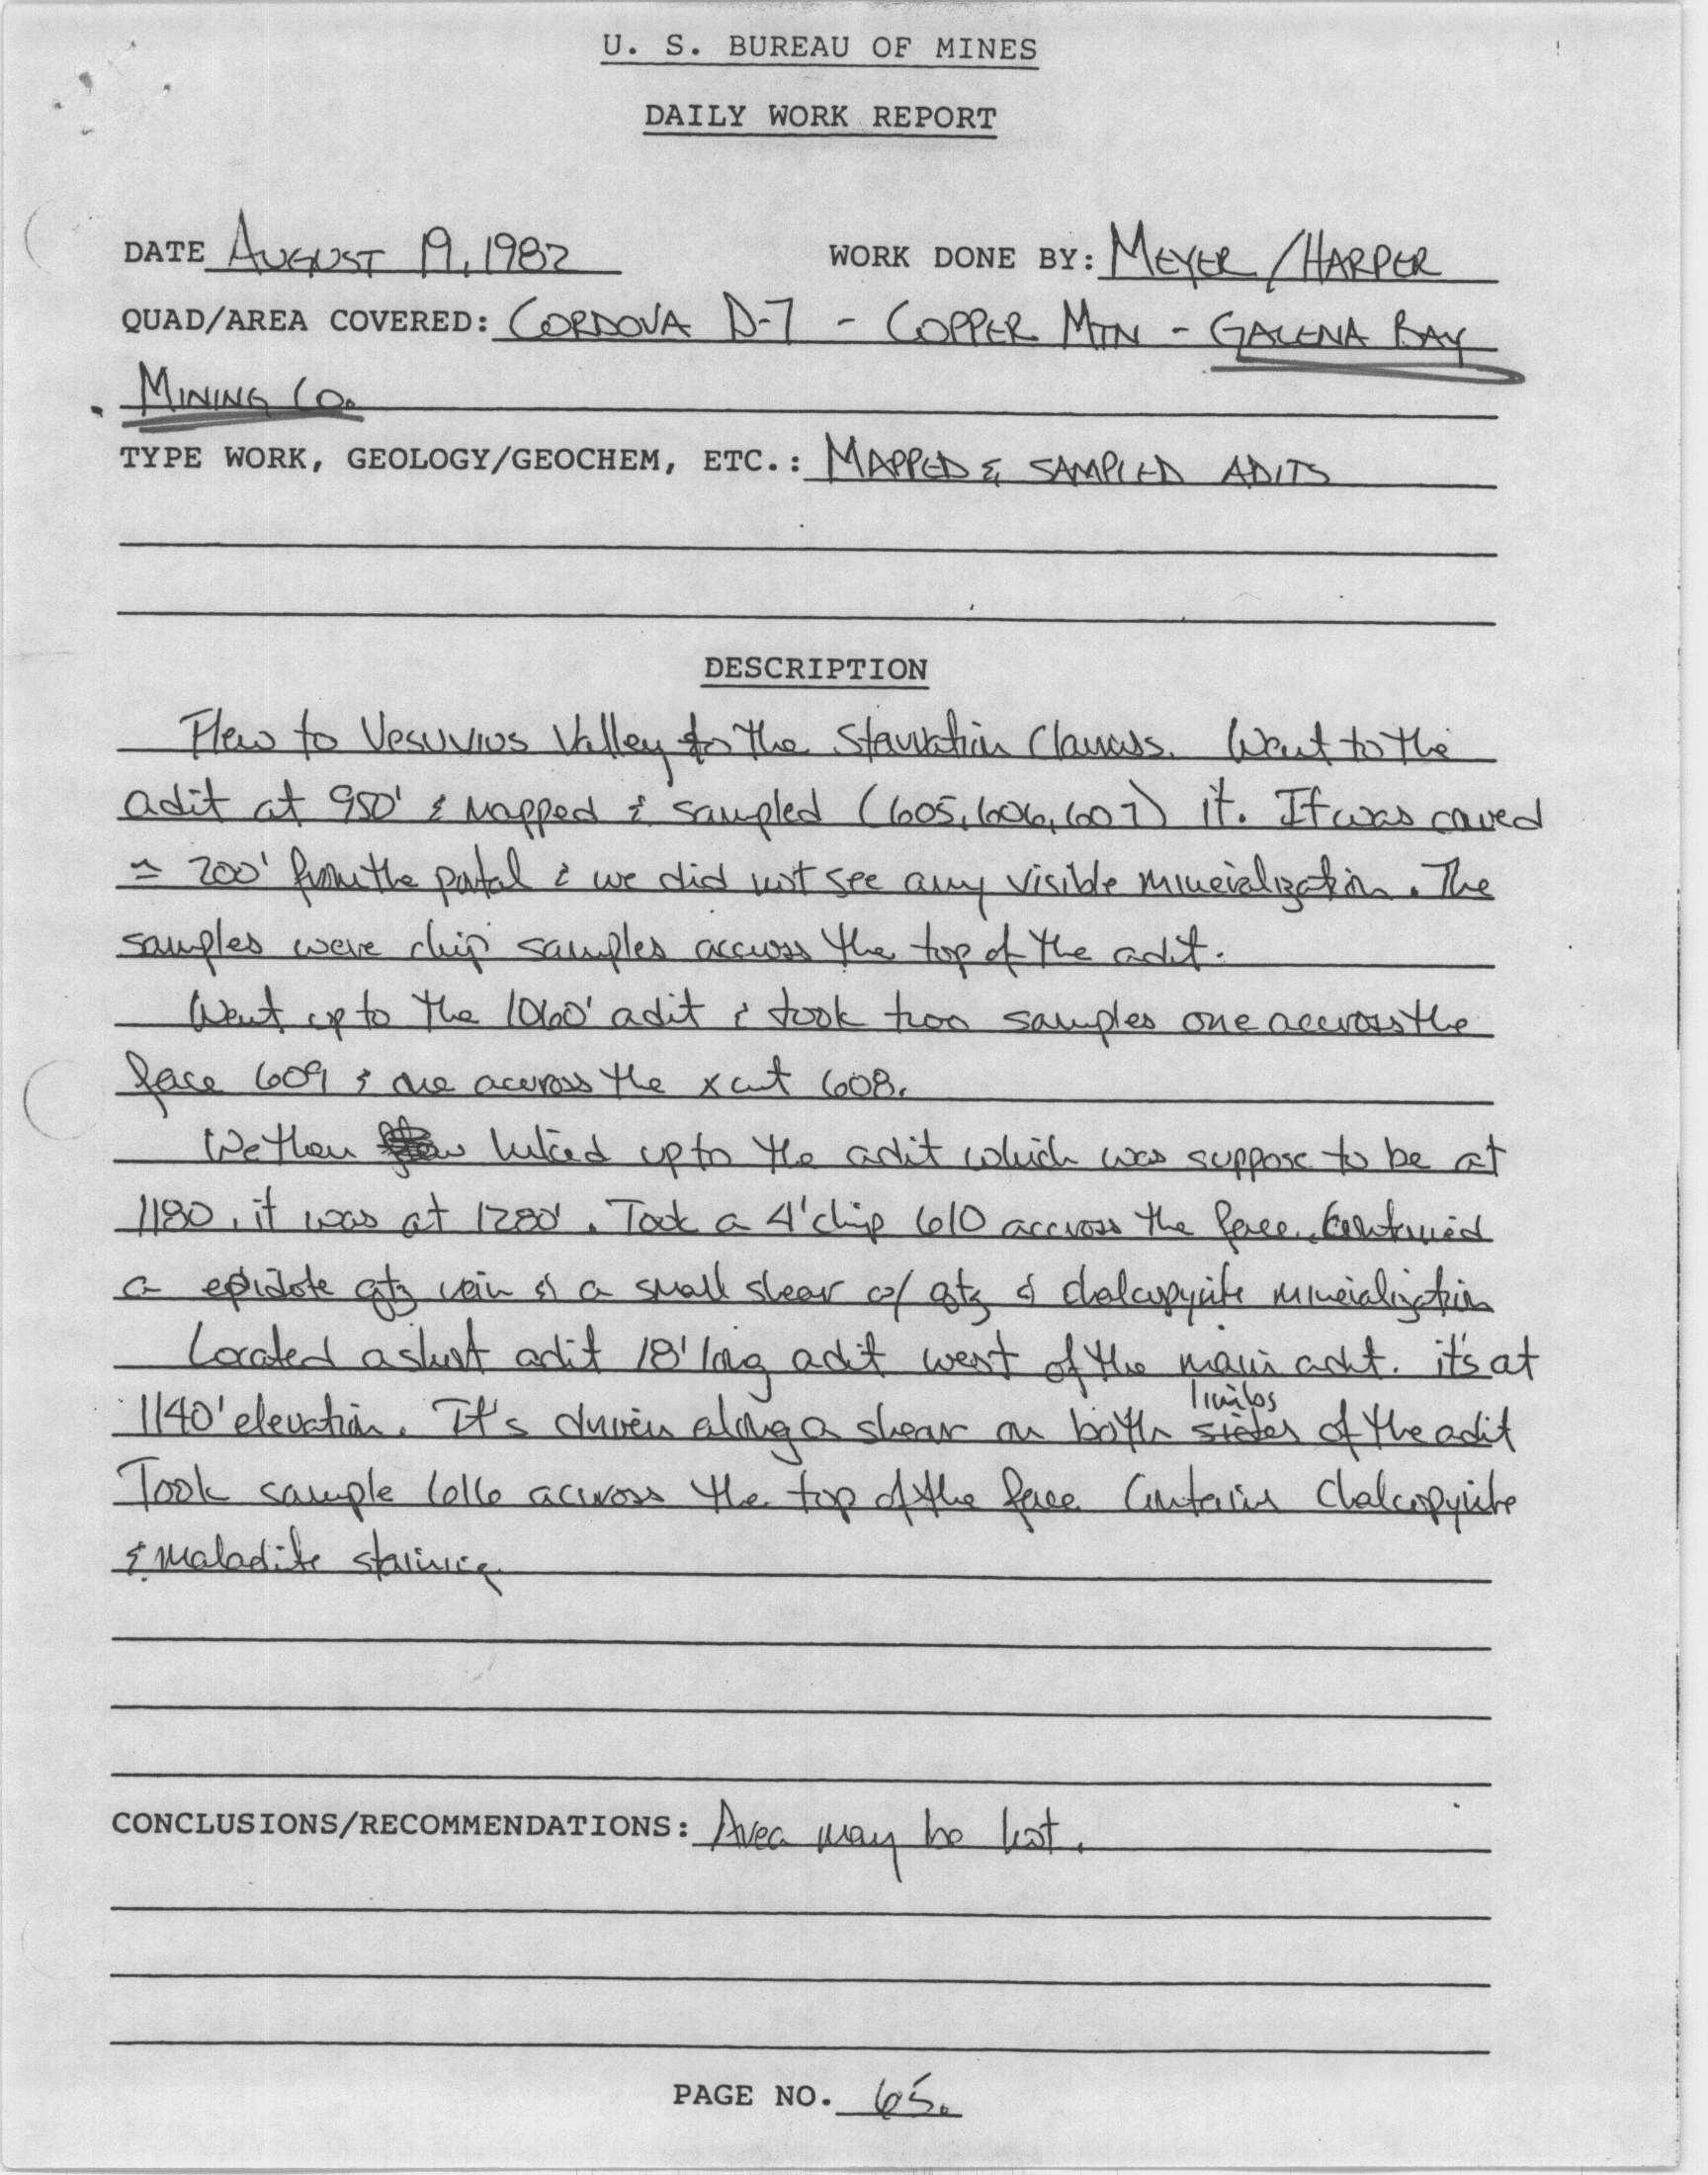 U. S. BUREAU OF MINES
DAILY WORK REPORT
DATE AUGUST 19, 1982 WORK DONE BY: MEYER / HARPER
QUAD/AREA COVERED: CORDOVA D-7 - COPPER MTN - GALENA BAY
MINING CO.
TYPE WORK, GEOLOGY/GEOCHEM, ETC.: MAPPED & SAMPLED ADITS
DESCRIPTION
Flew to Vesuvius Valley to the Starvation Claims. Went to the
adit at 950' & mapped & sampled (605, 606, 607) it. It was caved
≃ 200' from the portal & we did not see any visible mineralization. The
samples were chip samples accross the top of the adit.
Went up to the 1060' adit & took two samples one accross the
face 609 & one accross the xcut 608.
We then hiked up to the adit which was suppose to be at
1180, it was at 1280'. Took a 4' chip 610 accross the face. Contained
a epidote qtz vein & a small shear w/ qtz & chalcopyrite mineralization
Located a short adit 18' long adit west of the main adit. it's at
1140' elevation. It's driven along a shear on both limbs of the adit
Took sample 616 accross the top of the face Contains Chalcopyrite
& malachite staining
CONCLUSIONS/RECOMMENDATIONS: Area may be hot.
PAGE NO. 65.